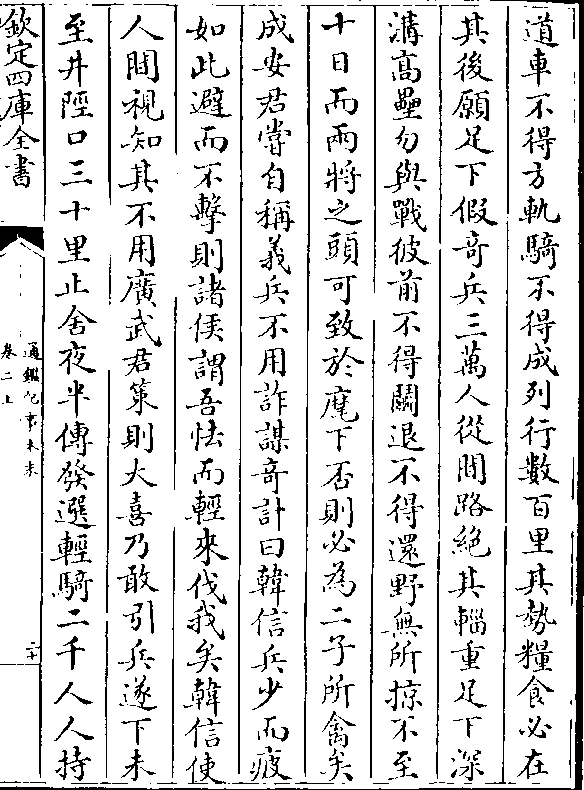 道車不得方軌騎不得成列行數百里其勢糧食必在
其後願足下假竒兵三萬人從間路絶其輜重足下深
溝髙壘勿與戰彼前不得鬭退不得還野無所掠不至
十日而兩將之頭可致於麾下否則必為二子所禽矣
成安君嘗自稱義兵不用詐謀竒計曰韓信兵少而疲
如此避而不擊則諸侯謂吾怯而輕來伐我矣韓信使
人間視知其不用廣武君策則大喜乃敢引兵遂下未
至井陘口三十里止舍夜半傳發選輕騎二千人人持
欽定四庫全書
通鑑紀事本末
卷二上
二十